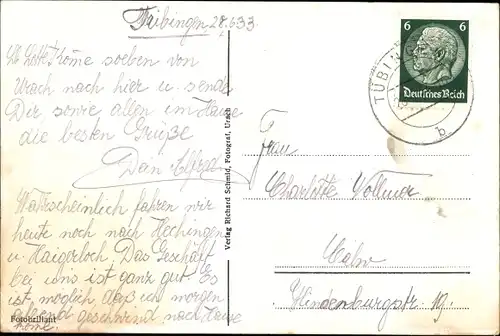 Tübingen 28.6.33.
Lb. Lotte! Komme soeben von
Urach nach hier u. sende
Dir sowie allen im Hause
die besten Grüße
Dein Alfred
Wahrscheinlich fahren wir
heute noch nach Hechingen
u. Haigerloch. Das Geschäft
bei uns ist ganz gut. Es
ist möglich, dass ich morgen
abend geschwind nach Hause
komme.
Fotobrillant
Verlag Richard Schmid, Fotograf, Urach
6 6
Deutsches Reich
TÜBINGEN
b
Frau
Charlotte Vollmer
Calw
Hindenburgstr. 19.